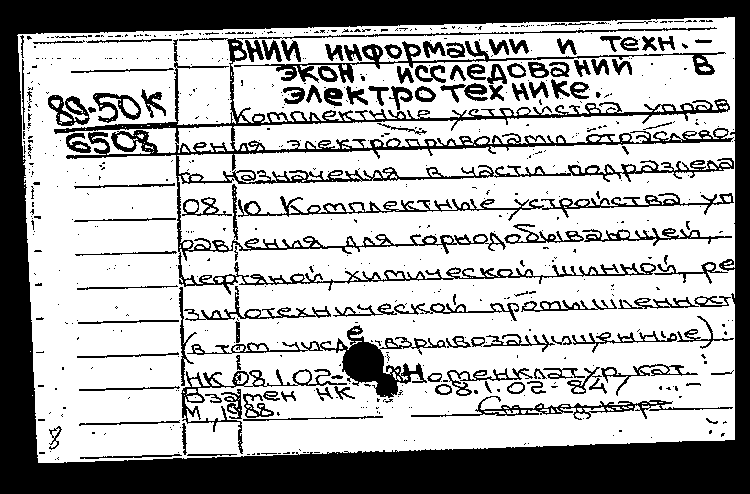 ВНИИ информации и техн.-
экон. исследований в
электротехнике.
89-50К
6508
Комплектные устройства управ
ления электроприводами отраслево-
го назначения в части подраздела
08.10. Комплектные устройства уп
равления для горнодобывающей,
нефтяной, химической, шинной, ре
зинотехнической промышленност
(в том числе взрывозащищенные):
НК 08.1.02- Номенклатур. кат.
Взамен НК 08.1.02-84/ ...-
М., 1988.
См. след. карт.
8